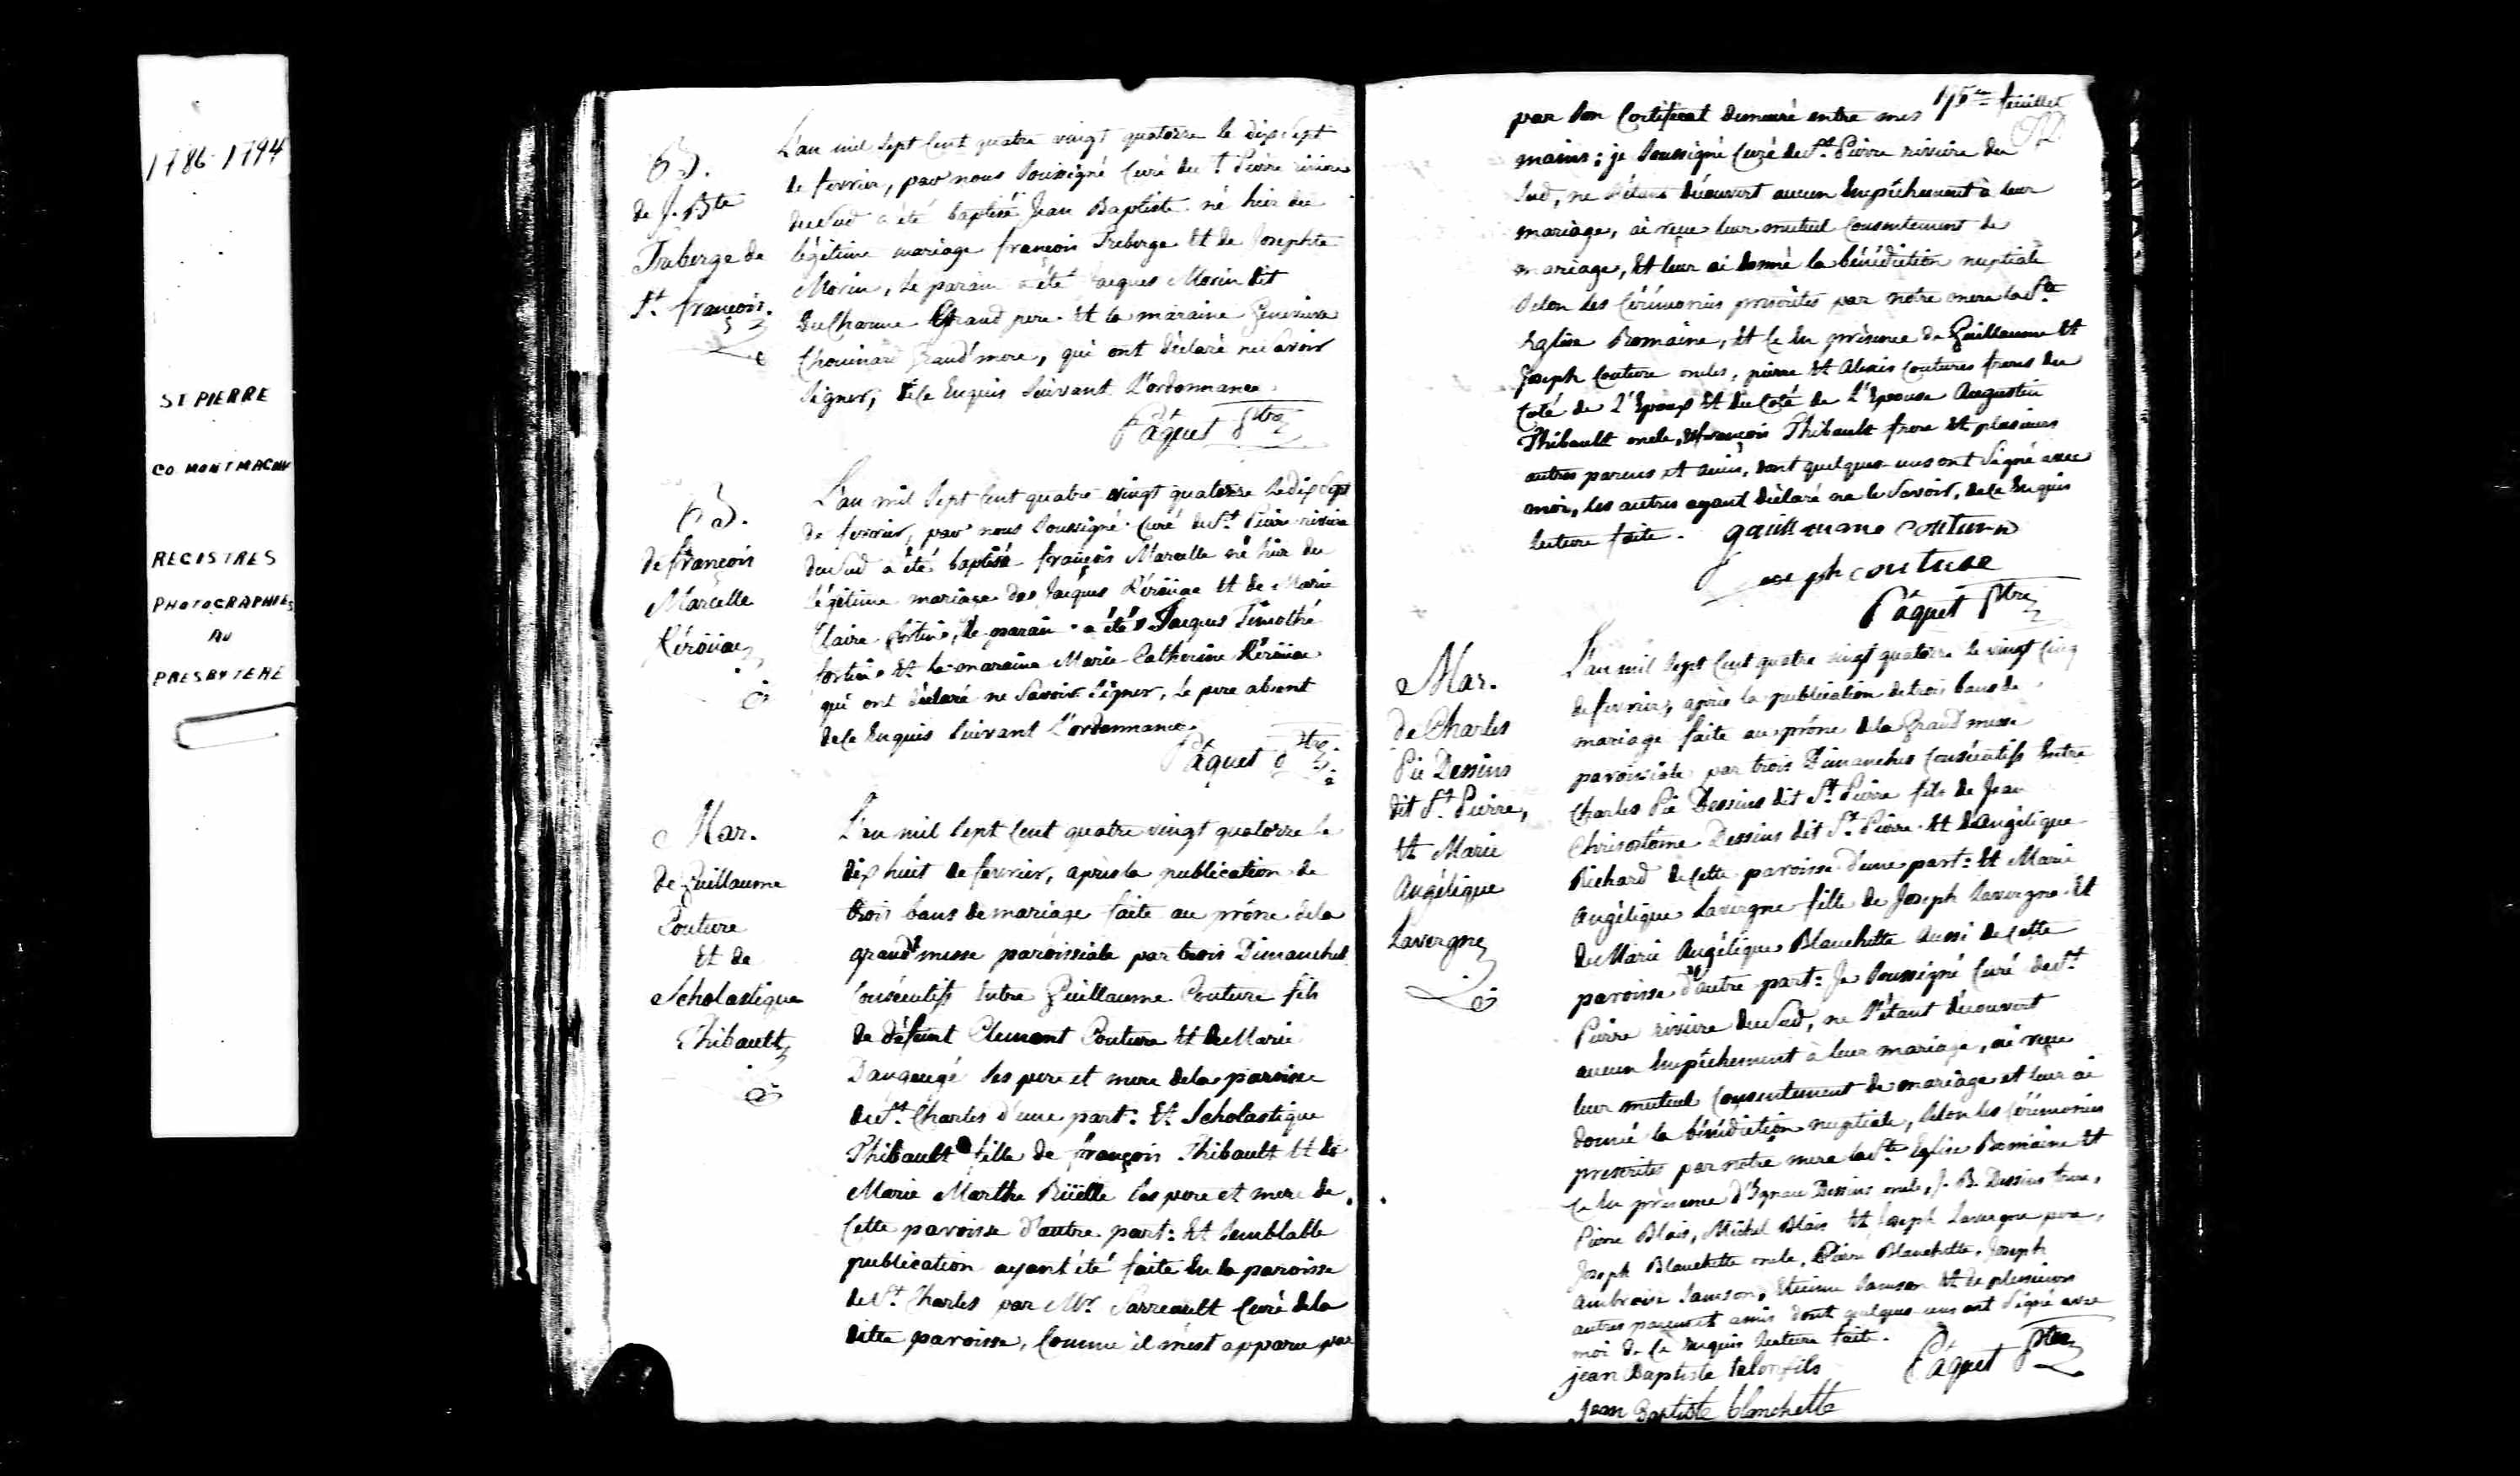 1786-1794
ST PIERRE
CO MONTMAGNY
REGISTRES
PHOTOGRAPHIES
AU
PRESBYTERE
B.
de J. Bte
Treberge de
St. françois.
L'an mil sept Cent quatre vingt quatorze le dix sept
de fevrier, par nous soussigné Curé de St Pierre riviere
du Sud a été baptisé Jean Baptiste né hier du
légitime mariage françois Treberge Et de Josephte
Morin, le parain a été Jacques Morin dit
DuCharme Grand pere Et la maraine Genevieve
Chouinard Grand'mere, qui ont déclaré ne savoir
signer, de Ce Enquis suivant L'ordonnance.
Pâquet Ptre
B.
de françois
Marcelle
Kéroüac
L'an mil sept Cent quatre vingt quatorze le dix sept
de fevrier, par nous soussigné Curé de St. Pierre riviere
du Sud a été baptisé françois Marcelle né hier du
légitime mariage de Jacques Kéroüac Et de Marie
Claire fortin, le parain a été Jacques Timothé
fortin Et la maraine Marie Catherine Kéroüac
qui ont déclaré ne savoir signer, le pere absent
de Ce Enquis suivant L'ordonnance.
Pâquet Ptre
Mar.
de Guillaume
Couture
Et de
Scholastique
Thibault
L'an mil sept Cent quatre vingt quatorze le
dix huit de fevrier, après la publication de
trois bans de mariage faite au prône de la
grand messe paroissiale par trois Dimanches
Consécutifs Entre Guillaume Couture fils
de défunt Clement Couture Et de Marie
Dangeugé ses pere et mere de la paroisse
de St. Charles d'une part: Et Scholastique
Thibault fille de françois Thibault Et de
Marie Marthe Rüelle ses pere et mere de
Cette paroisse d'autre part: Et semblable
publication ayant été faite En la paroisse
de St. Charles par Mr. Sarreault Curé de la
dite paroisse, Comme il m'est apparu par
175me feuillet
par son Certificat demeuré entre mes
mains; je soussigné Curé de St. Pierre riviere du
Sud, ne s'étant découvert aucun Empêchement à leur
mariage, ai reçu leur mutuel Consentement de
mariage, Et leur ai donné la bénédiction nuptiale
selon les Cérémonies prescrites par notre mere la Ste
Eglise Romaine, Et Ce En présence de Guillaume Et
Joseph Couture oncles, pierre Et Alexis Coutures freres du
Coté de L'Epoux Et du Coté de L'Epouse Augustin
Thibault oncle, françois Thibault frere Et plusieurs
autres parens et amis, dont quelques-uns ont signé avec
moi, les autres ayant déclaré ne le savoir, de Ce Enquis
lecture faite. guillaume couture
Joseph couture
Pâquet Ptre
Mar.
de Charles
Pie Dessins
dit St. Pierre,
Et Marie
Angélique
Lavergne
L'an mil sept Cent quatre vingt quatorze le vingt Cinq
de fevrier, après la publication de trois bans de
mariage faite au prône de la Grand messe
paroissiale par trois Dimanches Consécutifs Entre
Charles Pie Dessins dit St. Pierre fils de Jean
Chrisostôme Dessins dit St. Pierre Et d'Angélique
Richard de Cette paroisse d'une part: Et Marie
Angélique Lavergne fille de Joseph Lavergne Et
de Marie Angélique Blanchette aussi de Cette
paroisse d'autre part: Je soussigné Curé de St.
Pierre riviere du Sud, ne s'étant découvert
aucun Empêchement à leur mariage, ai reçu
leur mutuel Consentement de mariage et leur ai
donné la bénédiction nuptiale, selon les Cérémonies
prescrites par notre mere la Ste. Eglise Romaine Et
Ce En présence d'Ignace Dessins oncle, J. B. Dessins frere,
Pierre Blais, Michel Blais Et Joseph Lavergne pere,
Joseph Blanchette oncle, Pierre Blanchette, Joseph
Ambroise Samson, Etienne Samson Et de plusieurs
autres parens et amis dont quelques-uns ont signé avec
moi de Ce Enquis lecture faite.
jean Baptiste talon fils Pâquet Ptre
Jean Baptiste blanchette